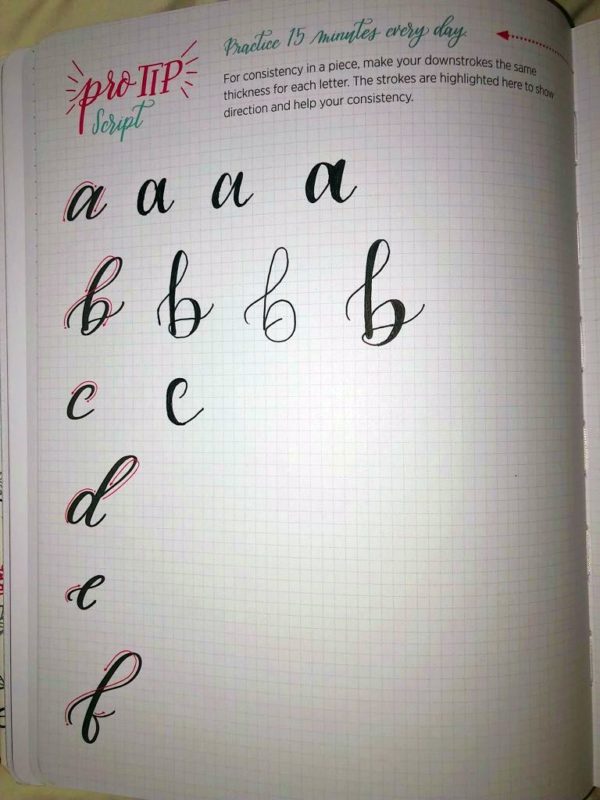 pro TIP
Script
Practice 15 minutes every day.
For consistency in a piece, make your downstrokes the same
thickness for each letter. The strokes are highlighted here to show
direction and help your consistency.
a a a a
b b b b
c c
d
e
f